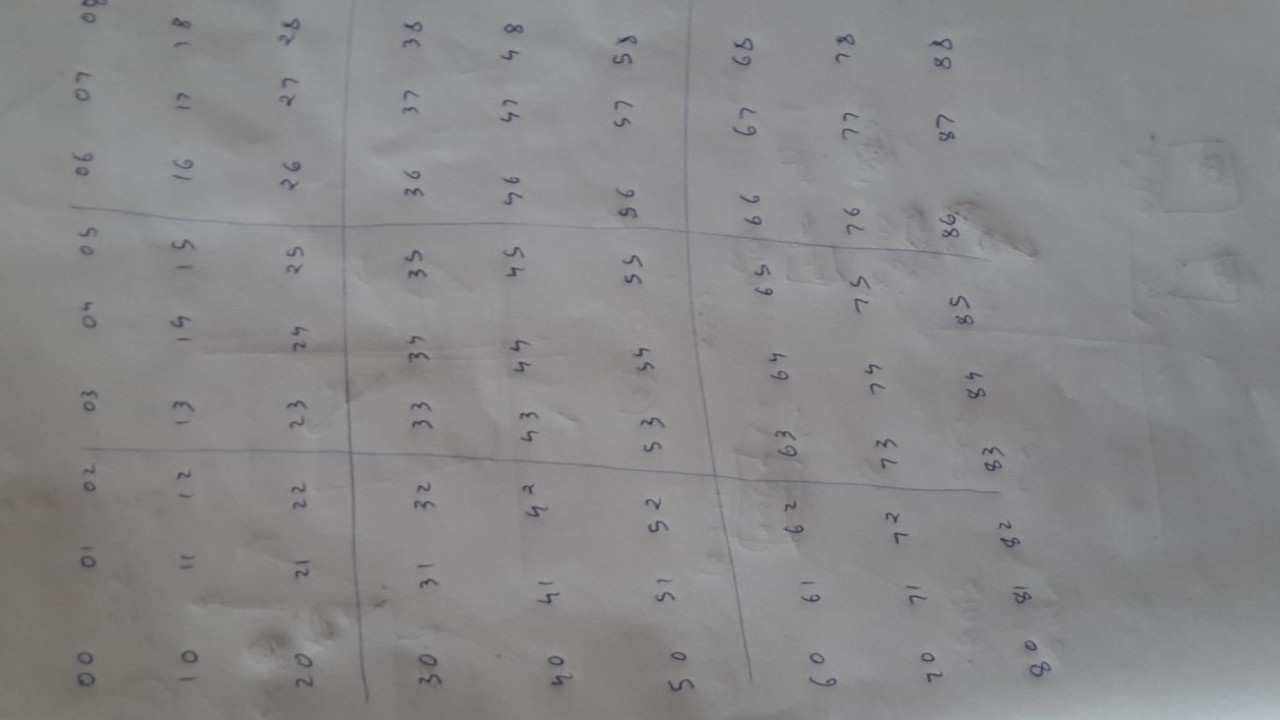 00 01 02 03 04 05 06 07 08
10 11 12 13 14 15 16 17 18
20 21 22 23 24 25 26 27 28
30 31 32 33 34 35 36 37 38
40 41 42 43 44 45 46 47 48
50 51 52 53 54 55 56 57 58
60 61 62 63 64 65 66 67 68
70 71 72 73 74 75 76 77 78
80 81 82 83 84 85 86 87 88